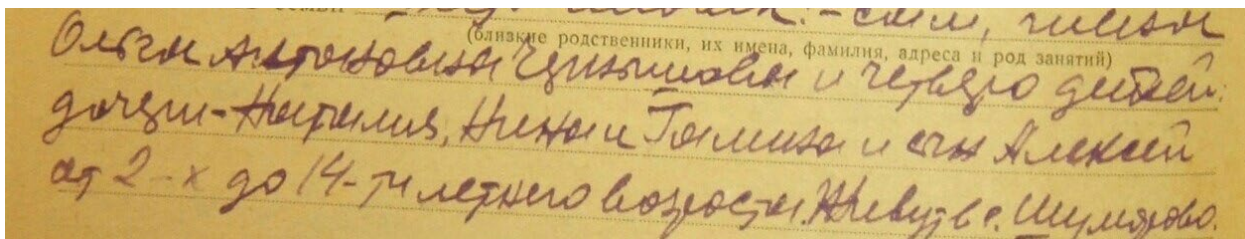 семьи
(близкие родственники, их имена, фамилия, адреса и род занятий)
Ольга Антоновна и четверо детей:
дочери - Наталия, Нина и Галина и сын Алексей
от 2-х до 14-ти летнего возраста. Живут в с.